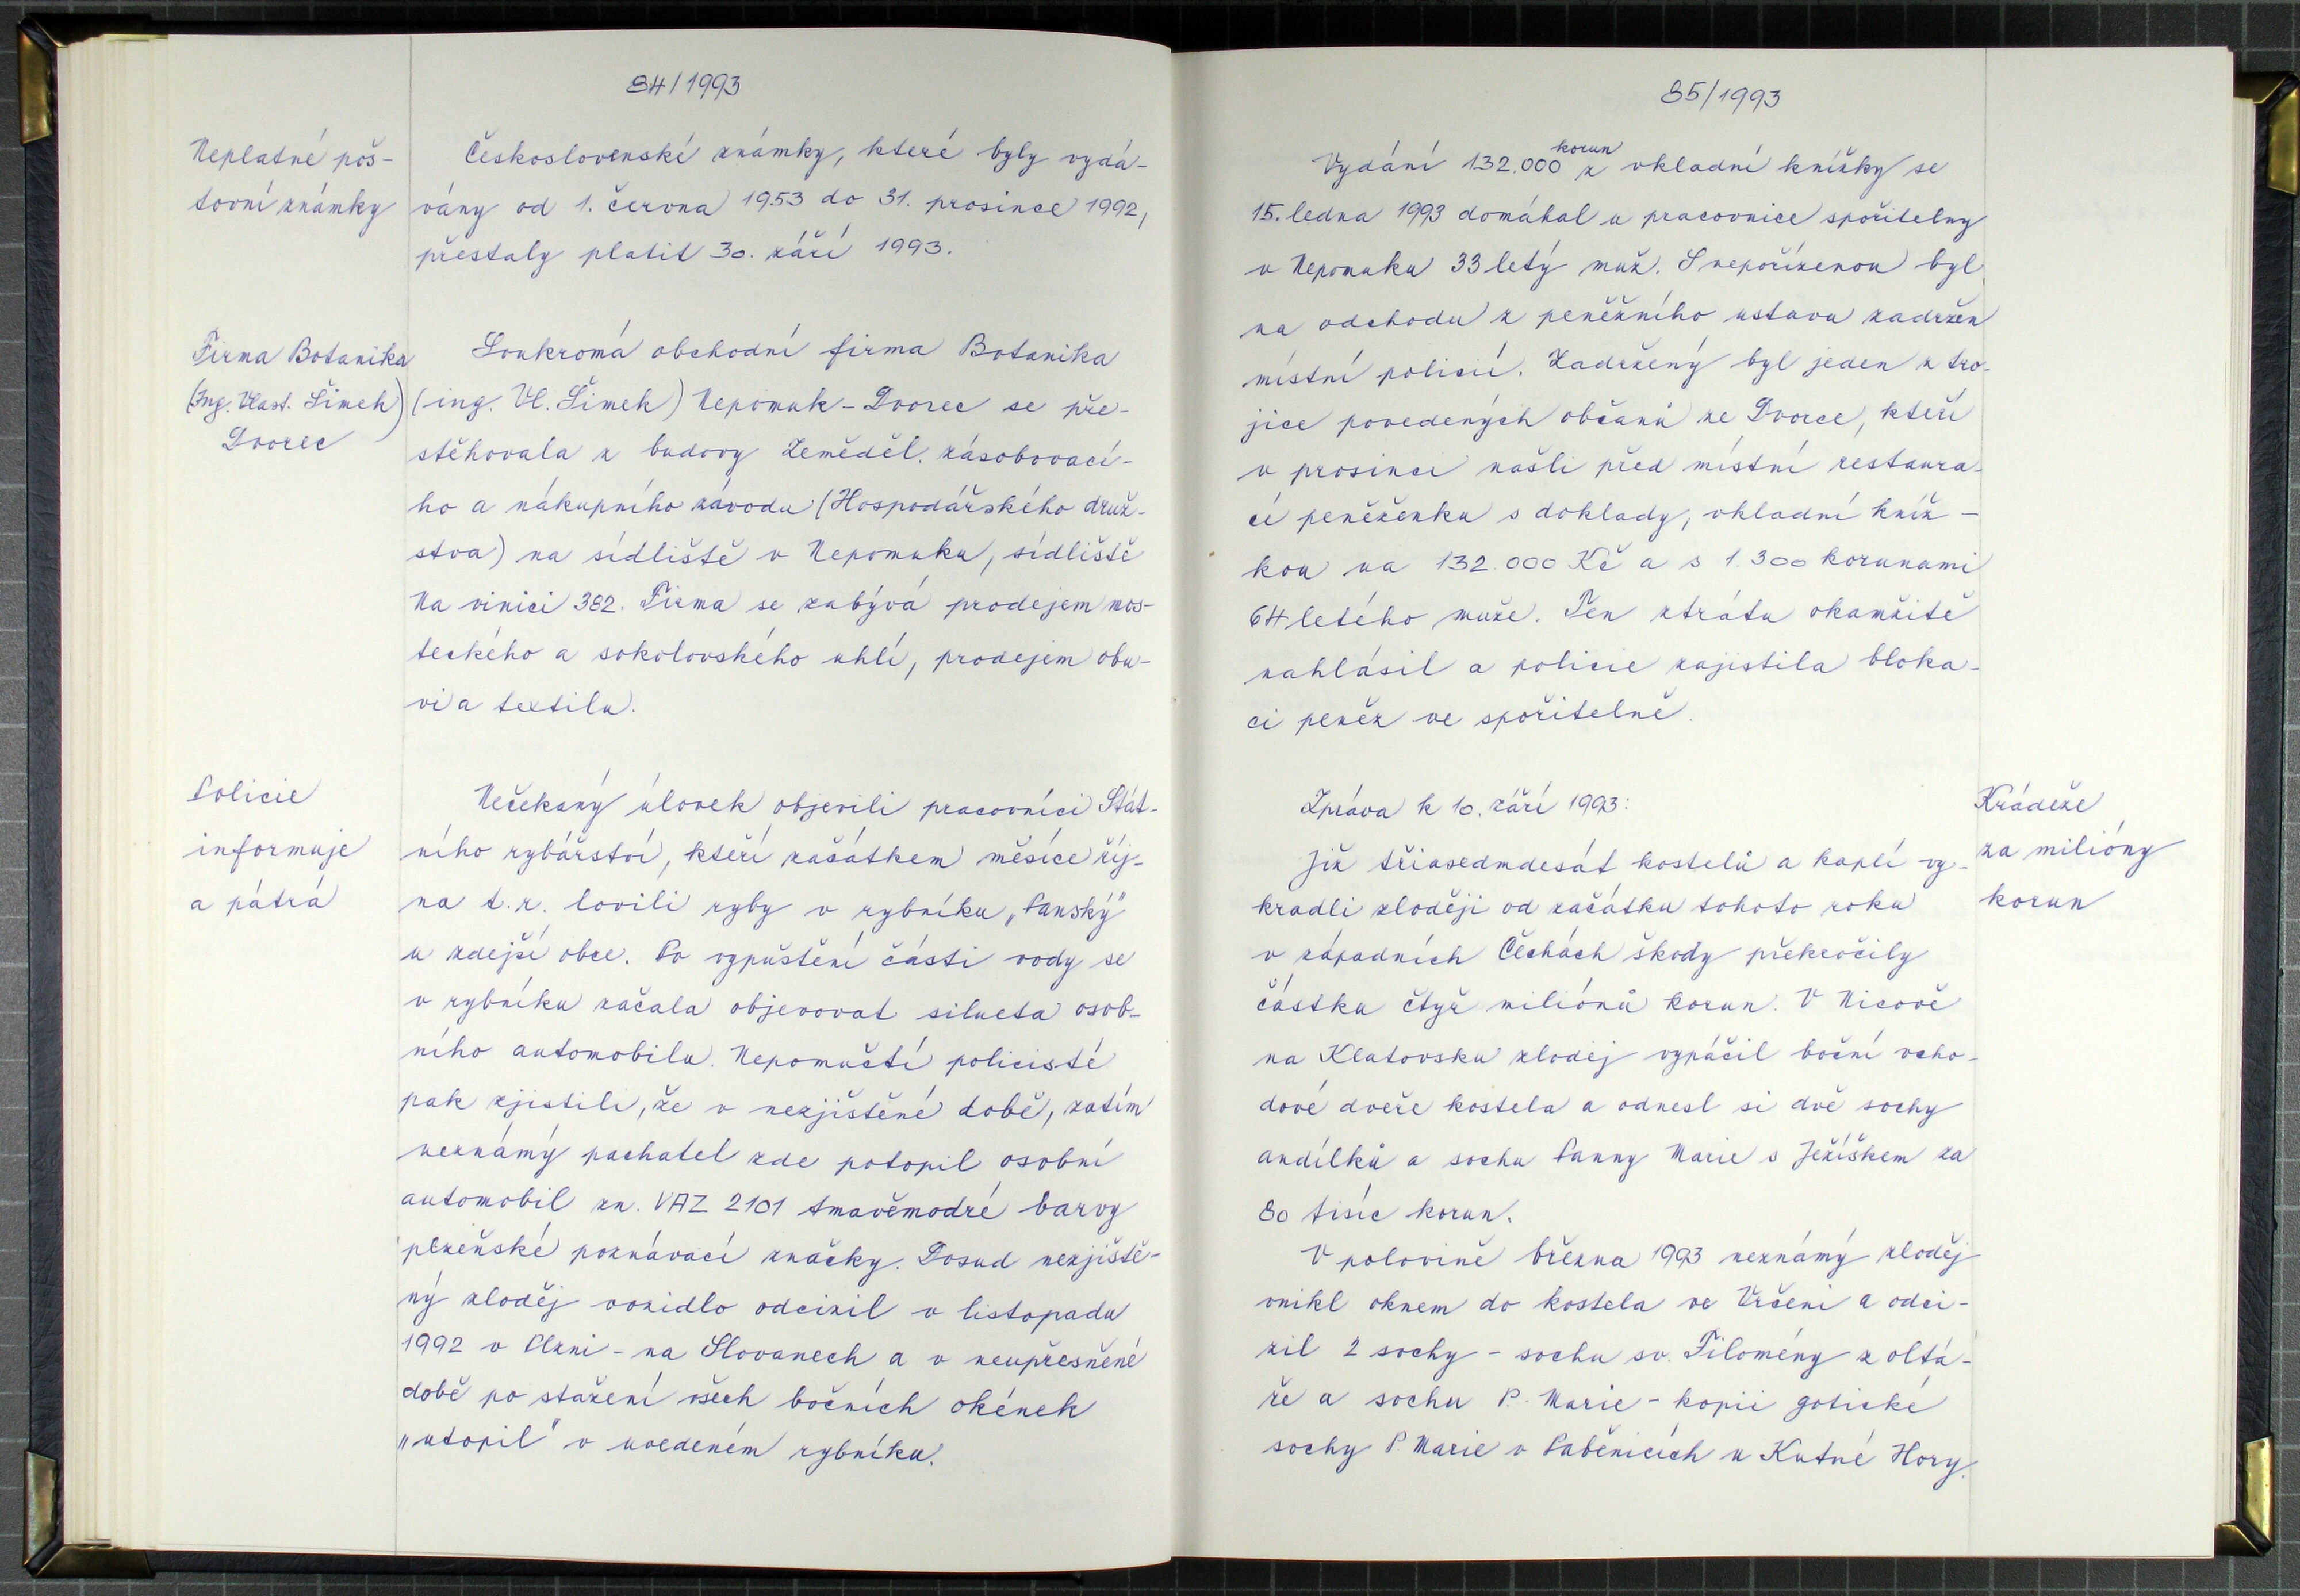 84/1993
Neplatné poš-
tovní známky
Československé známky, které byly vydá-
vány od 1. června 1953 do 31. prosince 1992,
přestaly platit 30. září 1993.
Firma Botanika
(Ing. Vlast. Šimek)
Dvorec
Soukromá obchodní firma Botanika
(ing. Vl. Šimek) Nepomuk - Dvorec se pře-
stěhovala z budovy Zeměděl. zásobovací-
ho a nákupního závodu (Hospodářského druž-
stva) na sídliště v Nepomuku, sídliště
Na vinici 382. Firma se zabývá prodejem mos-
teckého a sokolovského uhlí, prodejem obu-
vi a textilu.
Policie
informuje
a pátrá
Nečekaný úlovek objevili pracovníci Stát-
ního rybářství, kteří začátkem měsíce říj-
na t.r. lovili ryby v rybníku „Panský"
u zdejší obce. Po vypuštění části vody se
v rybníku začala objevovat silueta osob-
ního automobilu. Nepomučtí policisté
pak zjistili, že v nezjištěné době, zatím
neznámý pachatel zde potopil osobní
automobil zn. VAZ 2101 tmavěmodré barvy
plzeňské poznávací značky. Dosud nezjiště-
ný zloděj vozidlo odcizil v listopadu
1992 v Plzni - na Slovanech a v neupřesněné
době po stažení všech bočních okének
„utopil" v uvedeném rybníku.
85/1993
korun
Vydání 132.000 z vkladní knížky se
15. ledna 1993 domáhal u pracovnice spořitelny
v Nepomuku 33 letý muž. S nepořízenou byl
na odchodu z peněžního ustavu zadržen
místní policií. Zadržený byl jeden z tro-
jice povedených občanů ze Dvorce, kteří
v prosinci našli před místní restaura-
cí peněženku s doklady, vkladní kníž-
kou na 132.000 Kč a s 1.300 korunami
64 letého muže. Ten ztrátu okamžitě
nahlásil a policie zajistila bloka-
ci peněz ve spořitelně.
Zpráva k 10. září 1993:
Krádeže
za milióny
korun
Již třiasedmdesát kostelů a kaplí vy-
kradli zloději od začátku tohoto roku
v západních Čechách škody překročily
částku čtyř miliónů korun. V Nicově
na Klatovsku zloděj vypáčil boční vcho-
dové dveře kostela a odnesl si dvě sochy
andílků a sochu Panny Marie s Ježíškem za
80 tisíc korun.
V polovině března 1993 neznámý zloděj
vnikl oknem do kostela ve Vrčeni a odci-
zil 2 sochy - sochu sv. Filomény z oltá-
ře a sochu P. Marie - kopii gotické
sochy P. Marie v Paběnicích u Kutné Hory.